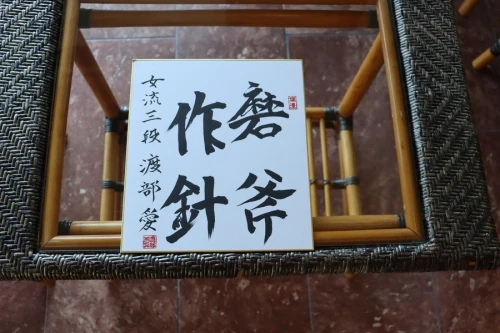 磨斧
作針
女流三段 渡部愛